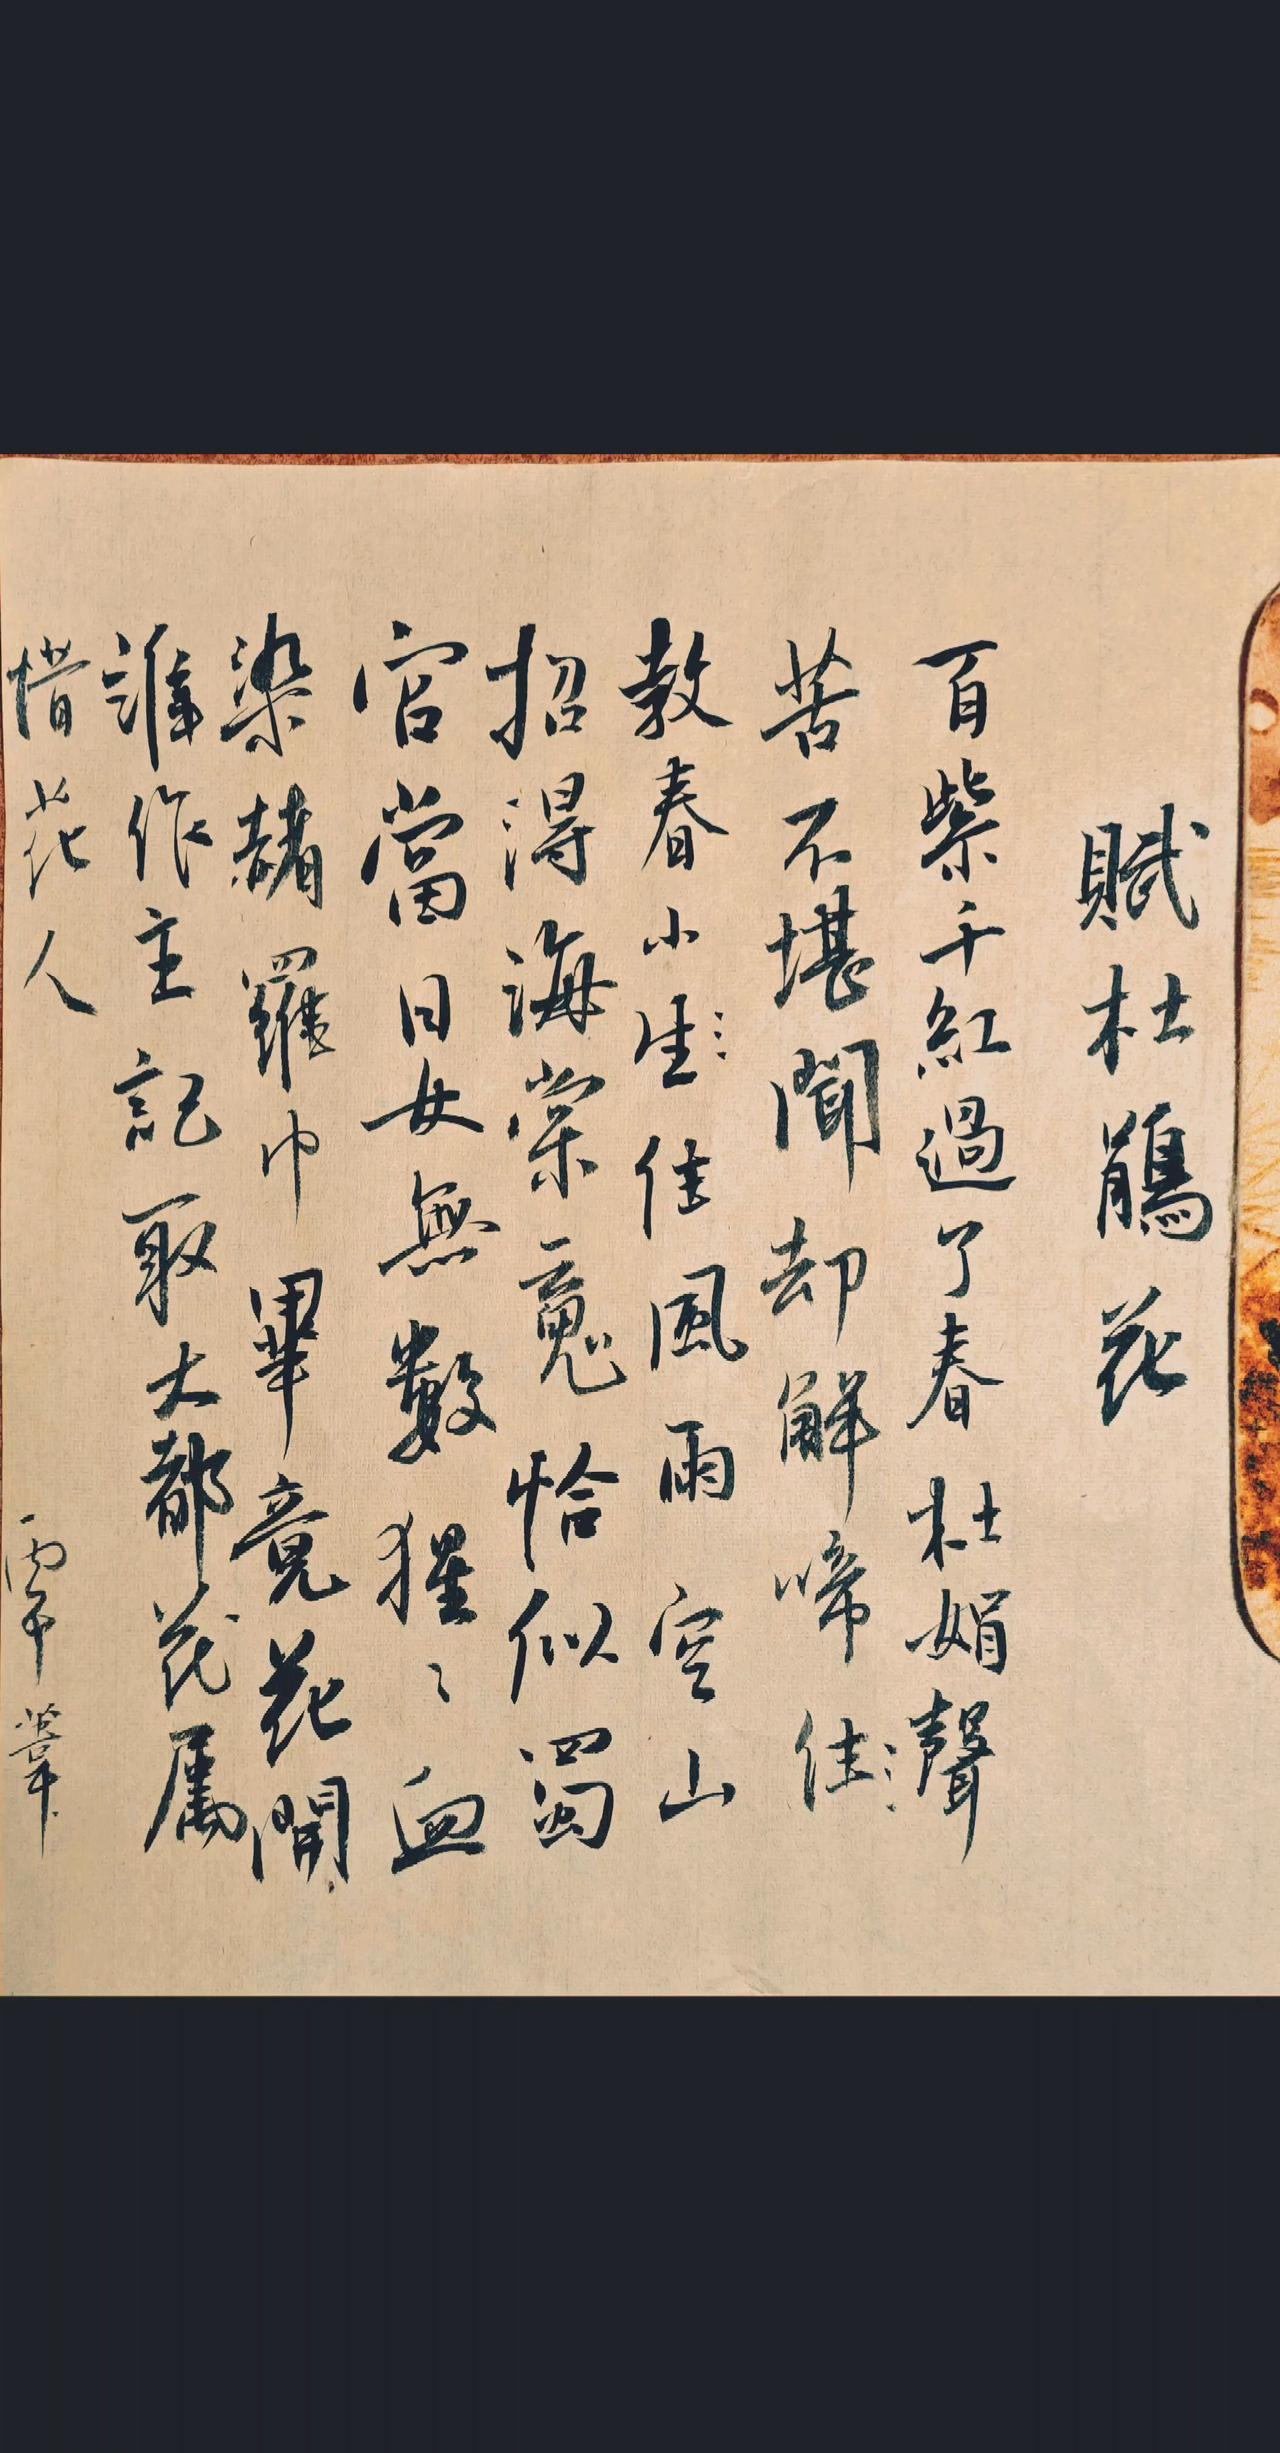 賦杜鵑花
百紫千紅過了春杜娟聲
苦不堪聞却解啼住
教春小住風雨空山
招得海棠䰟恰似蜀
宫當日女無數猩〻血
染赭羅巾畢竟花開
誰作主記取大都花属
惜花人
丙午